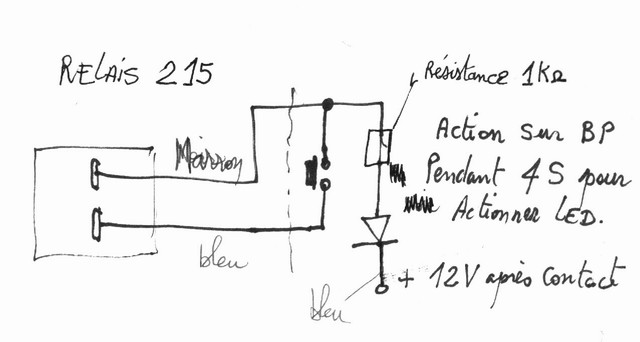 RELAIS 215
Résistance 1KΩ
Marron
Action sur BP
Pendant 4S pour
Actionner LED.
bleu
+ 12V après Contact
bleu